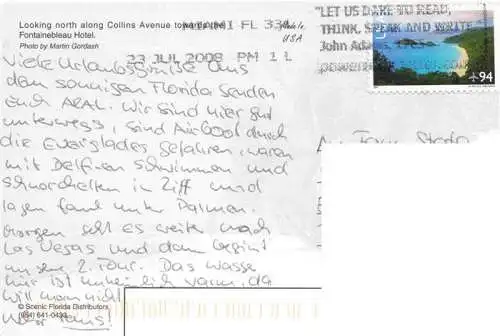 Looking north along Collins Avenue towards the
Fontainebleau Hotel.
Photo by Martin Gordash
MIAMI FL 33
USA
23 JUL 2008 PM 1 L
"LET US DARE TO READ,
THINK, SPEAK AND WRITE
John Adams,
94
Viele Urlaubsgrüsse aus
dem sonnigen Florida senden
Euch ARAL. Wir sind hier gut
unterwegs, sind Airboot durch
die Everglades gefahren, waren
mit Delfinen schwimmen und
schnorcheln in Riff und
lagen faul unter Palmen.
Morgen geht es weiter nach
Las Vegas und dann beginnt
unsere 2. Tour. Das Wasser
hier ist warm, da
will man nicht
mehr raus!
An Fam.
© Scenic Florida Distributors
(954) 641-0439